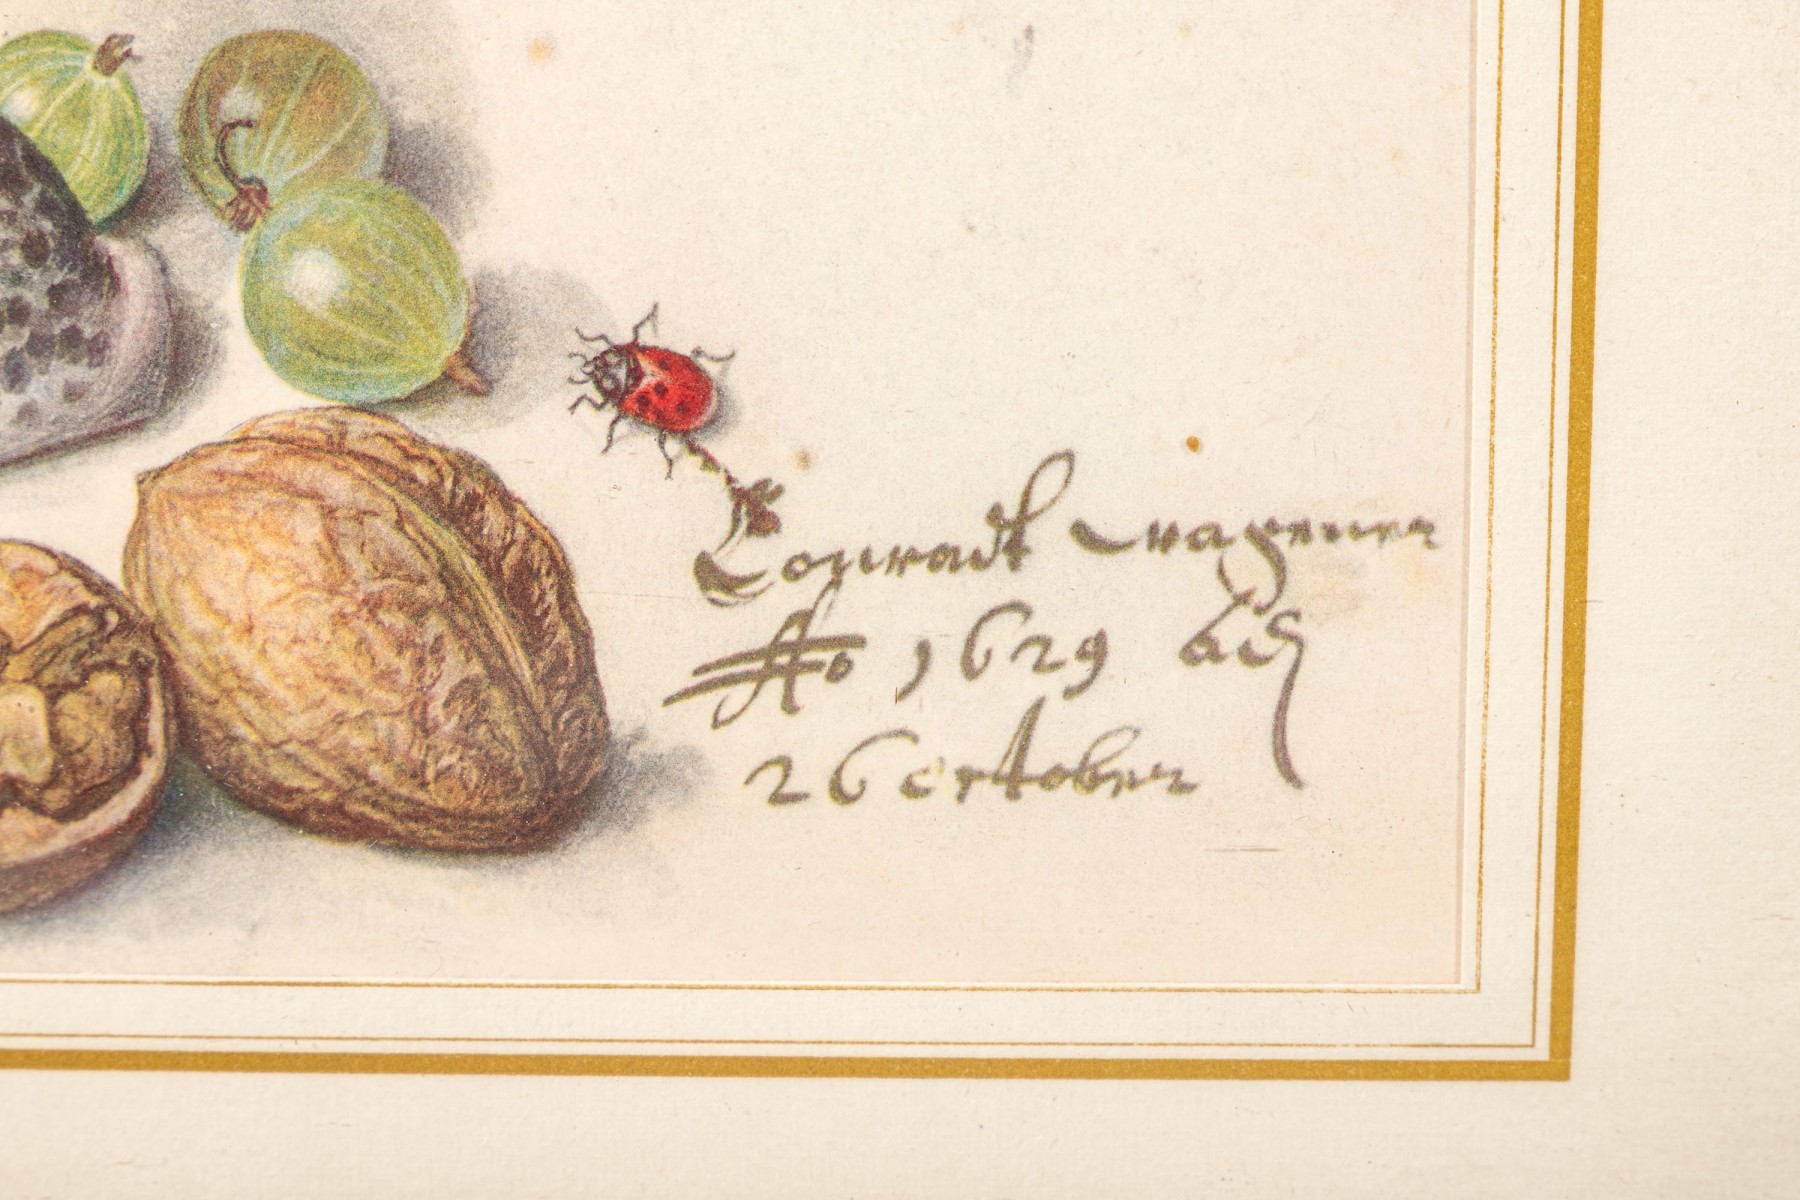 Conradt Wagener
Ao 1629 den
26 october